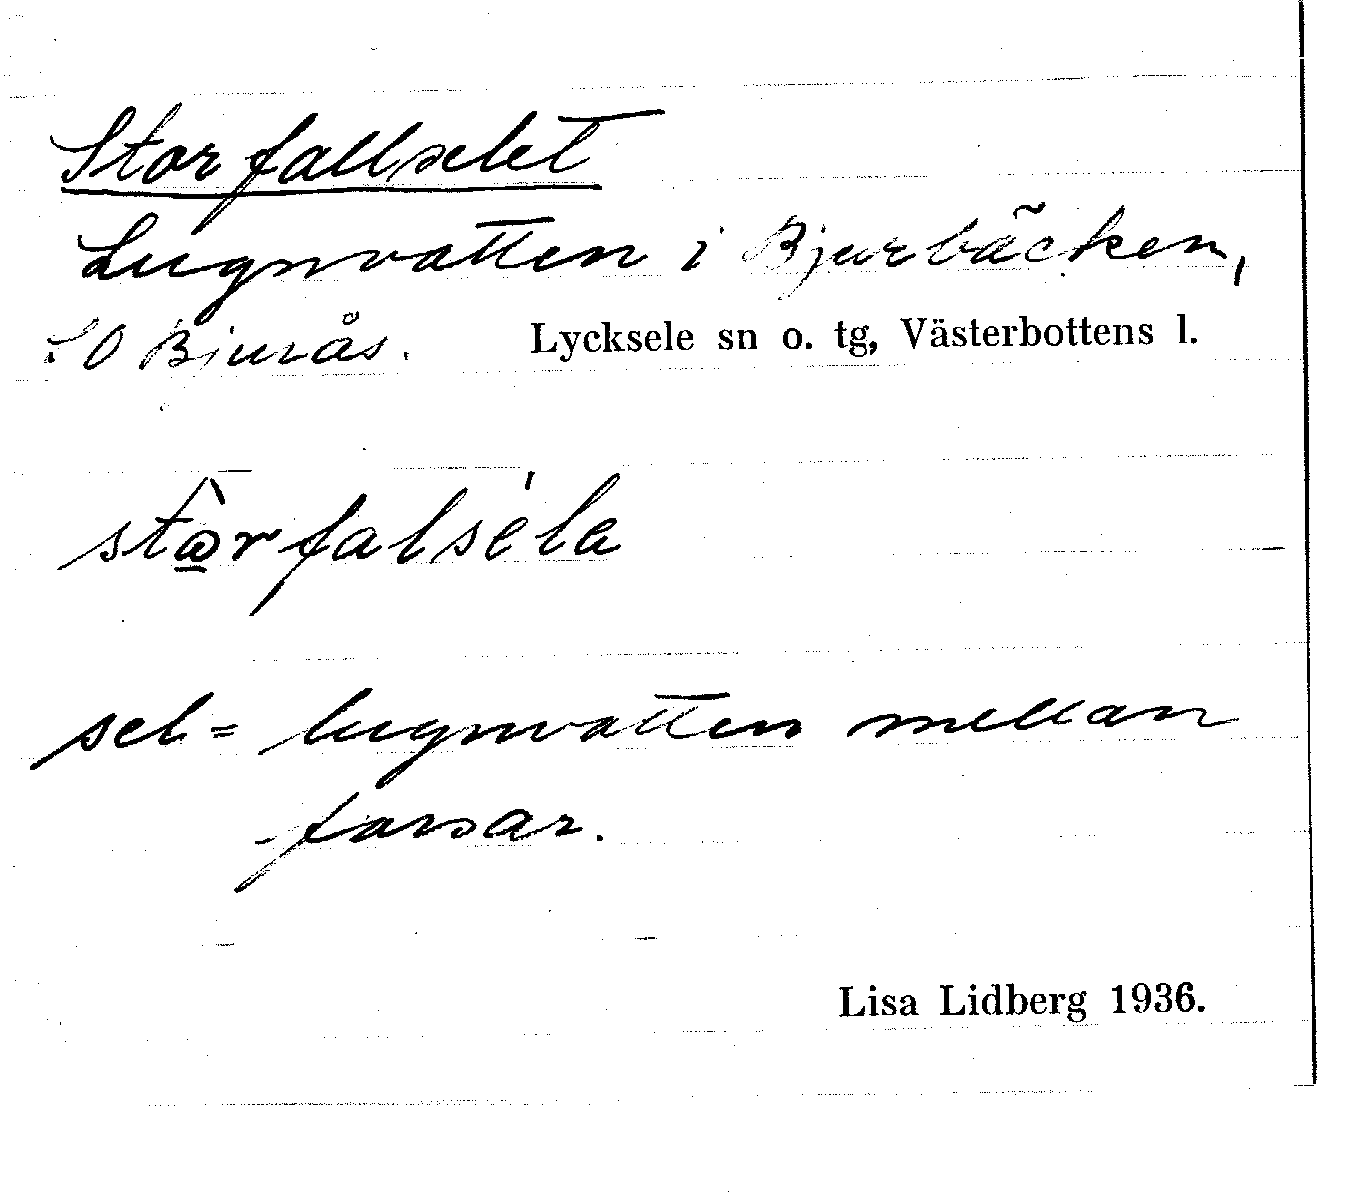 Storfallselet
Lugnvatten i Bjurbäcken,
SO Bjurås. Lycksele sn o. tg, Västerbottens l.
stọ̀rfalséla
sel = lugnvatten mellan
forsar.
Lisa Lidberg 1936.